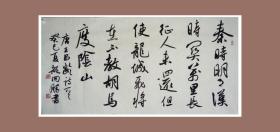 秦時明月漢
時関萬里長
征人未還但
使龍城飛將
在不教胡馬
度陰山
唐王昌齡詩
癸巳夏 書